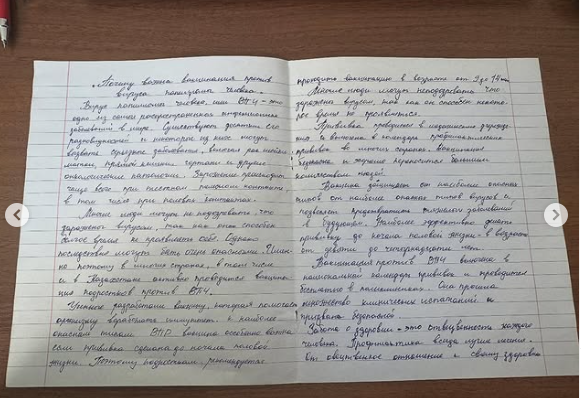 „Почему важна вакцинация против
вируса папилломы человека."
Вирус папилломы человека, или ВПЧ – это
один из самых распространённых инфекционных
заболеваний в мире. Существует десятки его
разновидностей и некоторые из них могут
вызвать серьёзные заболевания, включая рак шейки
матки, прямой кишки гортани и другие
онкологические патологии. Заражение происходит
чаще всего при тесном контакте,
в том числе при половых контактах.
Многие люди могут не подозревать, что
заражены вирусом, так как он способен
долгое время не проявлять себя. Однако
последствия могут быть очень опасными. Имен-
но поэтому в многих странах, в том числе
и в Казахстане активно проводится вакцина-
ция подростков против ВПЧ.
Учёные разработали вакцину, которая помогает
организму выработать иммунитет к наиболее
опасным типам ВПЧ. вакцина особенно важна
если прививка сделана до начала половой
жизни. Поэтому подросткам рекомендуется
проходить вакцинацию в возрасте от 9 до 14 лет
Многие люди могут неподозревать что
заражены вирусом, так как он способен некото-
рое время не проявляться.
Прививка проводится в медицинских учрежде-
и включена в календарь профилактических
прививок во многих странах. Вакцинация
и хорошо переносится большим
количеством людей.
Вакцина защищает от наиболее опасных
типов от наиболее опасных типов вирусов и
позволяет предотвратить заболевания
в будущем. Наиболее эффективно делать
прививку до начала половой жизни в возрасте
от девяти до четырнадцати лет
Вакцинация против ВПЧ включена в
национальный календарь прививок и проводится
бесплатно в поликлиниках. Она прошла
множество клинических испытаний и
признана
Забота о здоровье – это ответственность каждого
человека. Профилактика всегда лучше лечения.
отношение к своему здоровью